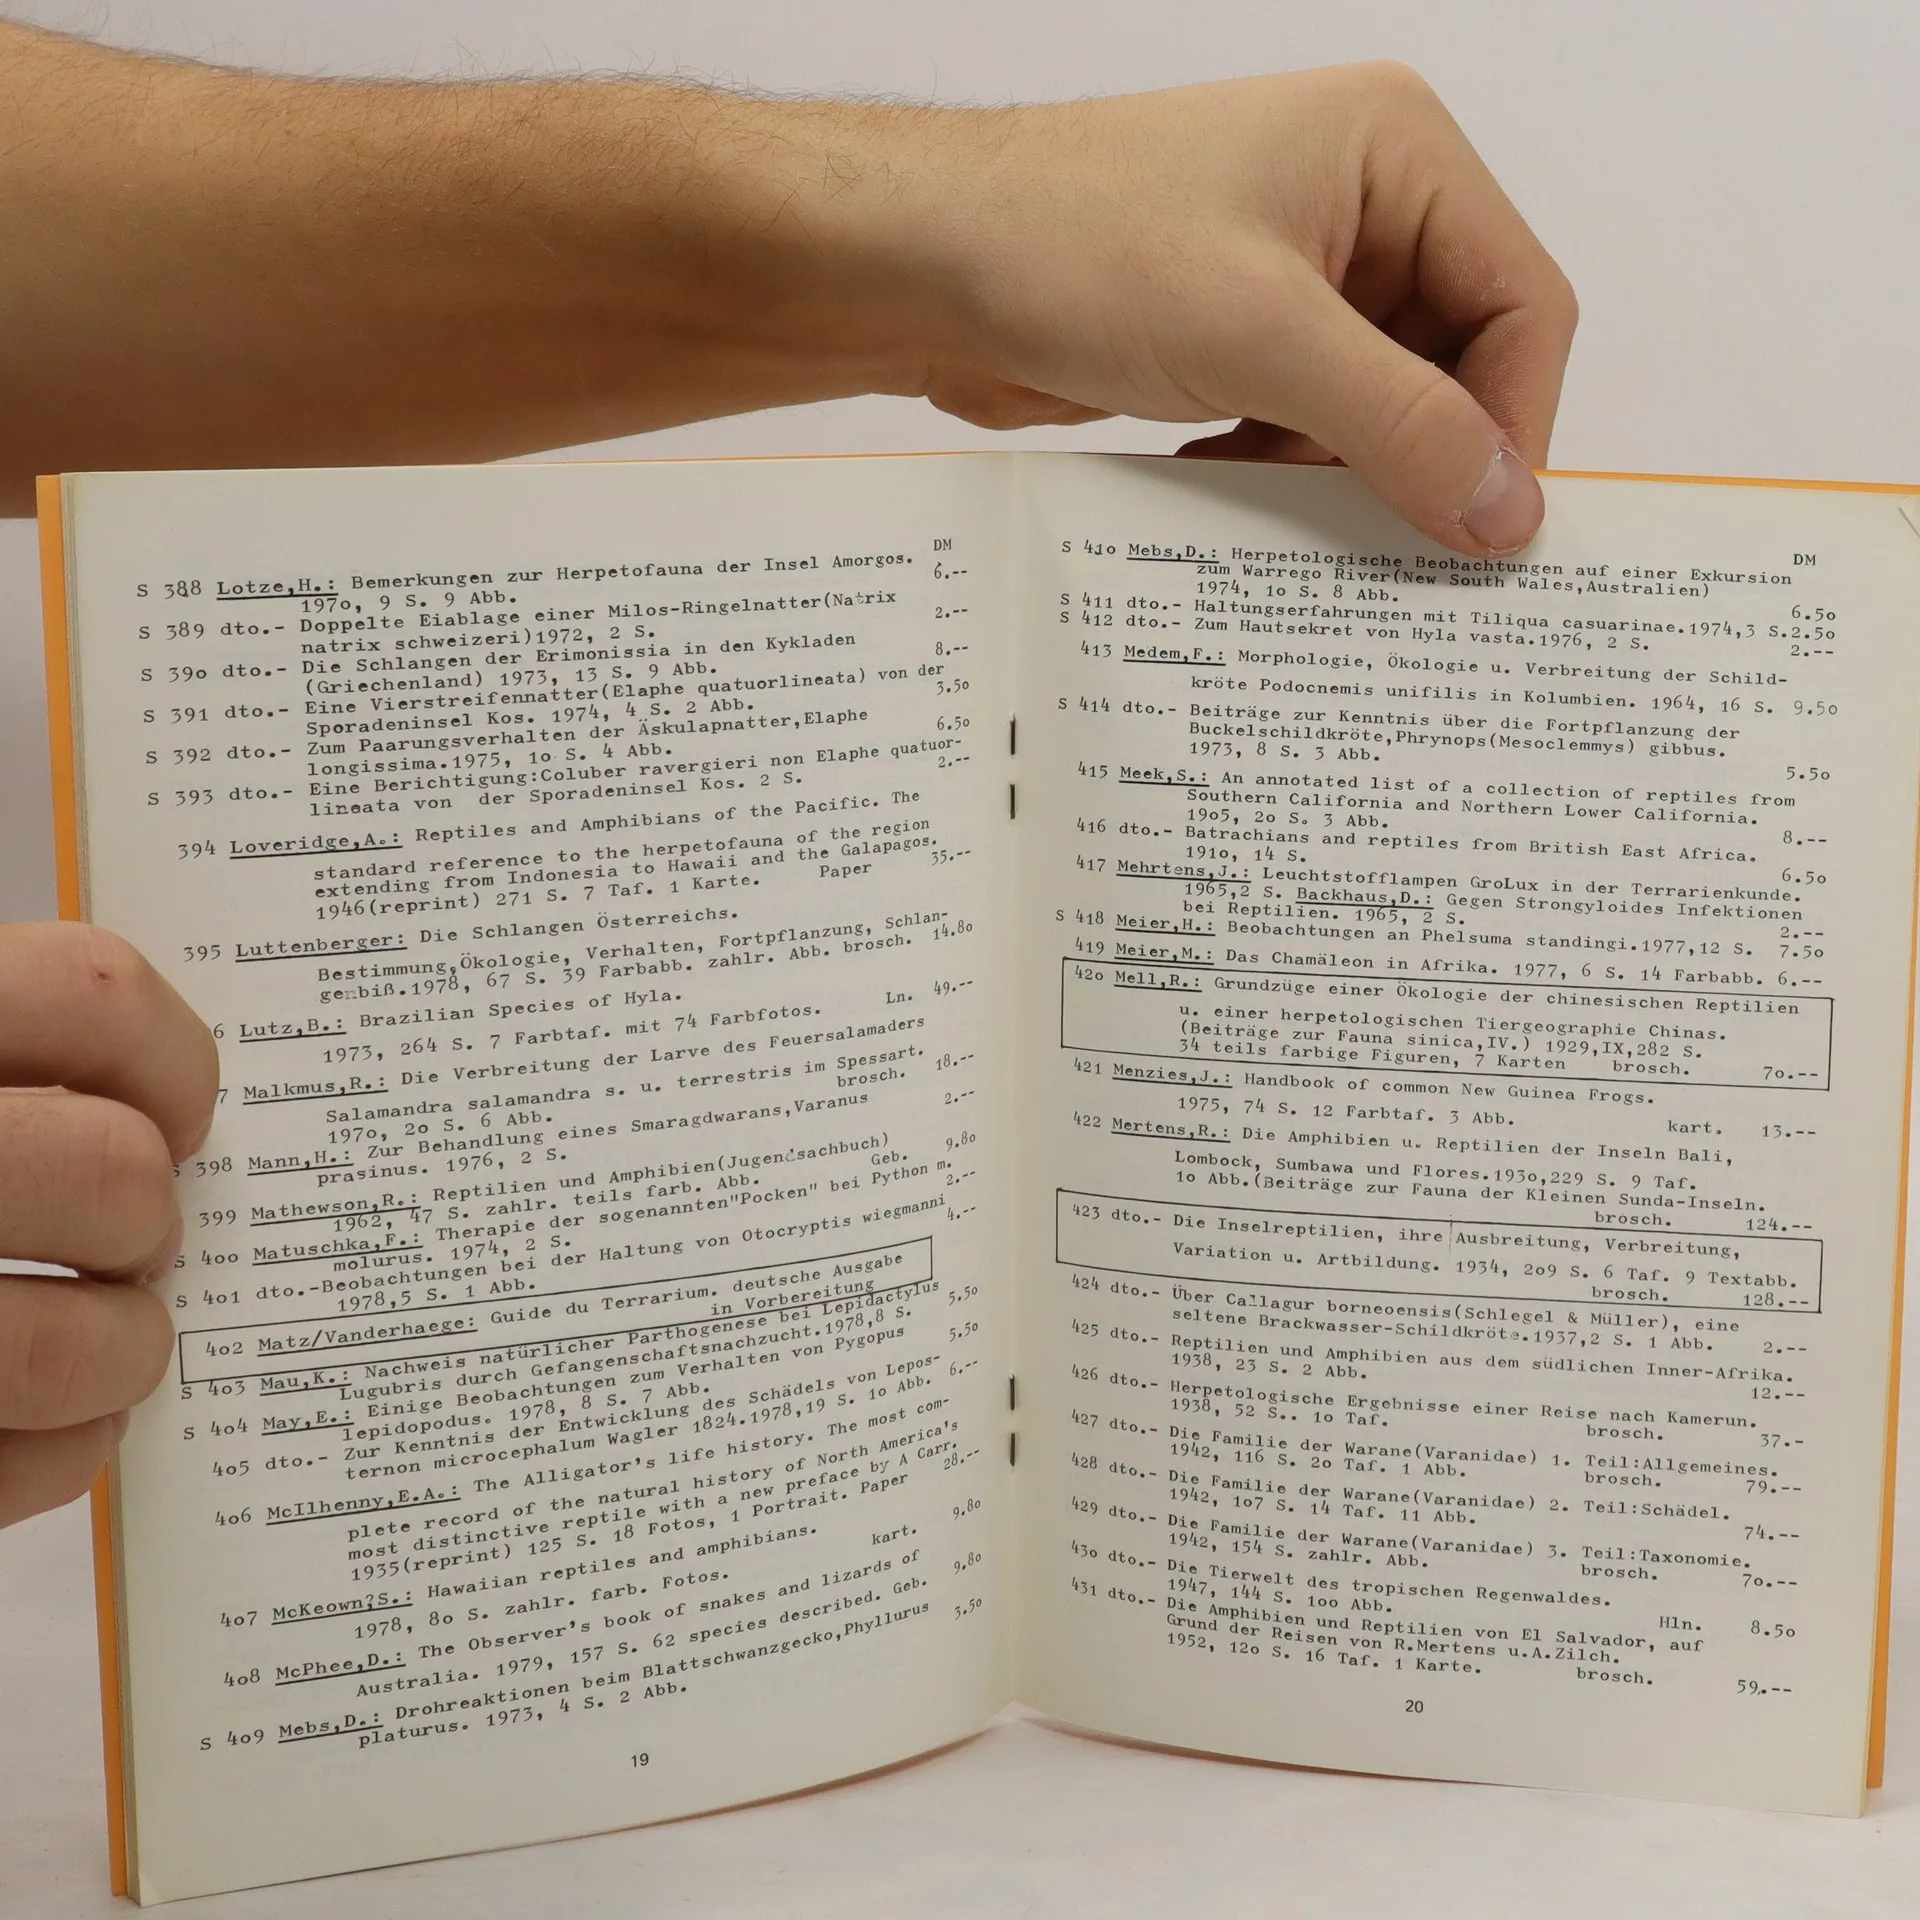 DM
S 388 Lotze,H.: Bemerkungen zur Herpetofauna der Insel Amorgos.
197o, 9 S. 9 Abb. 6.--
S 389 dto.- Doppelte Eiablage einer Milos-Ringelnatter(Natrix
natrix schweizeri)1972, 2 S. 2.--
S 39o dto.- Die Schlangen der Erimonissia in den Kykladen
(Griechenland) 1973, 13 S. 9 Abb. 8.--
S 391 dto.- Eine Vierstreifennatter(Elaphe quatuorlineata) von der
Sporadeninsel Kos. 1974, 4 S. 2 Abb. 3.5o
S 392 dto.- Zum Paarungsverhalten der Äskulapnatter,Elaphe
longissima.1975, 1o S. 4 Abb. 6.5o
S 393 dto.- Eine Berichtigung:Coluber ravergieri non Elaphe quatuor-
lineata von der Sporadeninsel Kos. 2 S. 2.--
394 Loveridge,A.: Reptiles and Amphibians of the Pacific. The
standard reference to the herpetofauna of the region
extending from Indonesia to Hawaii and the Galapagos.
1946(reprint) 271 S. 7 Taf. 1 Karte. Paper 35.--
395 Luttenberger: Die Schlangen Österreichs.
Bestimmung,Ökologie, Verhalten, Fortpflanzung, Schlan-
genbiß.1978, 67 S. 39 Farbabb. zahlr. Abb. brosch. 14.8o
6 Lutz,B.: Brazilian Species of Hyla.
1973, 264 S. 7 Farbtaf. mit 74 Farbfotos. Ln. 49.--
7 Malkmus,R.: Die Verbreitung der Larve des Feuersalamaders
Salamandra salamandra s. u. terrestris im Spessart.
197o, 2o S. 6 Abb. brosch. 18.--
S 398 Mann,H.: Zur Behandlung eines Smaragdwarans,Varanus
prasinus. 1976, 2 S. 2.--
399 Mathewson,R.: Reptilien und Amphibien(Jugendsachbuch)
1962, 47 S. zahlr. teils farb. Abb. Geb. 9.8o
S 4oo Matuschka,F.: Therapie der sogenannten"Pocken" bei Python m.
molurus. 1974, 2 S. 2.--
S 4o1 dto.-Beobachtungen bei der Haltung von Otocryptis wiegmanni
1978,5 S. 1 Abb. 4.--
4o2 Matz/Vanderhaege: Guide du Terrarium. deutsche Ausgabe
in Vorbereitung
S 4o3 Mau,K.: Nachweis natürlicher Parthogenese bei Lepidactylus
Lugubris durch Gefangenschaftsnachzucht.1978,8 S. 5.5o
S 4o4 May,E.: Einige Beobachtungen zum Verhalten von Pygopus
lepidopodus. 1978, 8 S. 7 Abb. 5.5o
4o5 dto.- Zur Kenntnis der Entwicklung des Schädels von Lepos-
ternon microcephalum Wagler 1824.1978,19 S. 1o Abb. 6.--
4o6 McIlhenny,E.A.: The Alligator's life history. The most com-
plete record of the natural history of North America's
most distinctive reptile with a new preface by A Carr.
1935(reprint) 125 S. 18 Fotos, 1 Portrait. Paper 28.--
4o7 McKeown?S.: Hawaiian reptiles and amphibians.
1978, 8o S. zahlr. farb. Fotos. kart. 9.8o
4o8 McPhee,D.: The Observer's book of snakes and lizards of
Australia. 1979, 157 S. 62 species described. Geb. 9.8o
S 4o9 Mebs,D.: Drohreaktionen beim Blattschwanzgecko,Phyllurus
platurus. 1973, 4 S. 2 Abb. 3.5o
19
DM
S 41o Mebs,D.: Herpetologische Beobachtungen auf einer Exkursion
zum Warrego River(New South Wales,Australien)
1974, 1o S. 8 Abb. 6.5o
S 411 dto.- Haltungserfahrungen mit Tiliqua casuarinae.1974,3 S.2.5o
S 412 dto.- Zum Hautsekret von Hyla vasta.1976, 2 S. 2.--
413 Medem,F.: Morphologie, Ökologie u. Verbreitung der Schild-
kröte Podocnemis unifilis in Kolumbien. 1964, 16 S. 9.5o
S 414 dto.- Beiträge zur Kenntnis über die Fortpflanzung der
Buckelschildkröte,Phrynops(Mesoclemmys) gibbus.
1973, 8 S. 3 Abb. 5.5o
415 Meek,S.: An annotated list of a collection of reptiles from
Southern California and Northern Lower California.
19o5, 2o S. 3 Abb. 8.--
416 dto.- Batrachians and reptiles from British East Africa.
191o, 14 S. 6.5o
417 Mehrtens,J.: Leuchtstofflampen GroLux in der Terrarienkunde.
1965,2 S. Backhaus,D.: Gegen Strongyloides Infektionen
bei Reptilien. 1965, 2 S. 2.--
S 418 Meier,H.: Beobachtungen an Phelsuma standingi.1977,12 S. 7.5o
419 Meier,M.: Das Chamäleon in Afrika. 1977, 6 S. 14 Farbabb. 6.--
42o Mell,R.: Grundzüge einer Ökologie der chinesischen Reptilien
u. einer herpetologischen Tiergeographie Chinas.
(Beiträge zur Fauna sinica,IV.) 1929,IX,282 S.
34 teils farbige Figuren, 7 Karten brosch. 7o.--
421 Menzies,J.: Handbook of common New Guinea Frogs.
1975, 74 S. 12 Farbtaf. 3 Abb. kart. 13.--
422 Mertens,R.: Die Amphibien u. Reptilien der Inseln Bali,
Lombock, Sumbawa und Flores.193o,229 S. 9 Taf.
1o Abb.(Beiträge zur Fauna der Kleinen Sunda-Inseln.
brosch. 124.--
423 dto.- Die Inselreptilien, ihre Ausbreitung, Verbreitung,
Variation u. Artbildung. 1934, 2o9 S. 6 Taf. 9 Textabb.
brosch. 128.--
424 dto.- Über Callagur borneoensis(Schlegel & Müller), eine
seltene Brackwasser-Schildkröte.1937,2 S. 1 Abb. 2.--
425 dto.- Reptilien und Amphibien aus dem südlichen Inner-Afrika.
1938, 23 S. 2 Abb. 12.--
426 dto.- Herpetologische Ergebnisse einer Reise nach Kamerun.
1938, 52 S.. 1o Taf. brosch. 37.-
427 dto.- Die Familie der Warane(Varanidae) 1. Teil:Allgemeines.
1942, 116 S. 2o Taf. 1 Abb. brosch. 79.--
428 dto.- Die Familie der Warane(Varanidae) 2. Teil:Schädel.
1942, 1o7 S. 14 Taf. 11 Abb. 74.--
429 dto.- Die Familie der Warane(Varanidae) 3. Teil:Taxonomie.
1942, 154 S. zahlr. Abb. brosch. 7o.--
43o dto.- Die Tierwelt des tropischen Regenwaldes.
1947, 144 S. 1oo Abb. Hln. 8.5o
431 dto.- Die Amphibien und Reptilien von El Salvador, auf
Grund der Reisen von R.Mertens u.A.Zilch.
1952, 12o S. 16 Taf. 1 Karte. brosch. 59.--
20